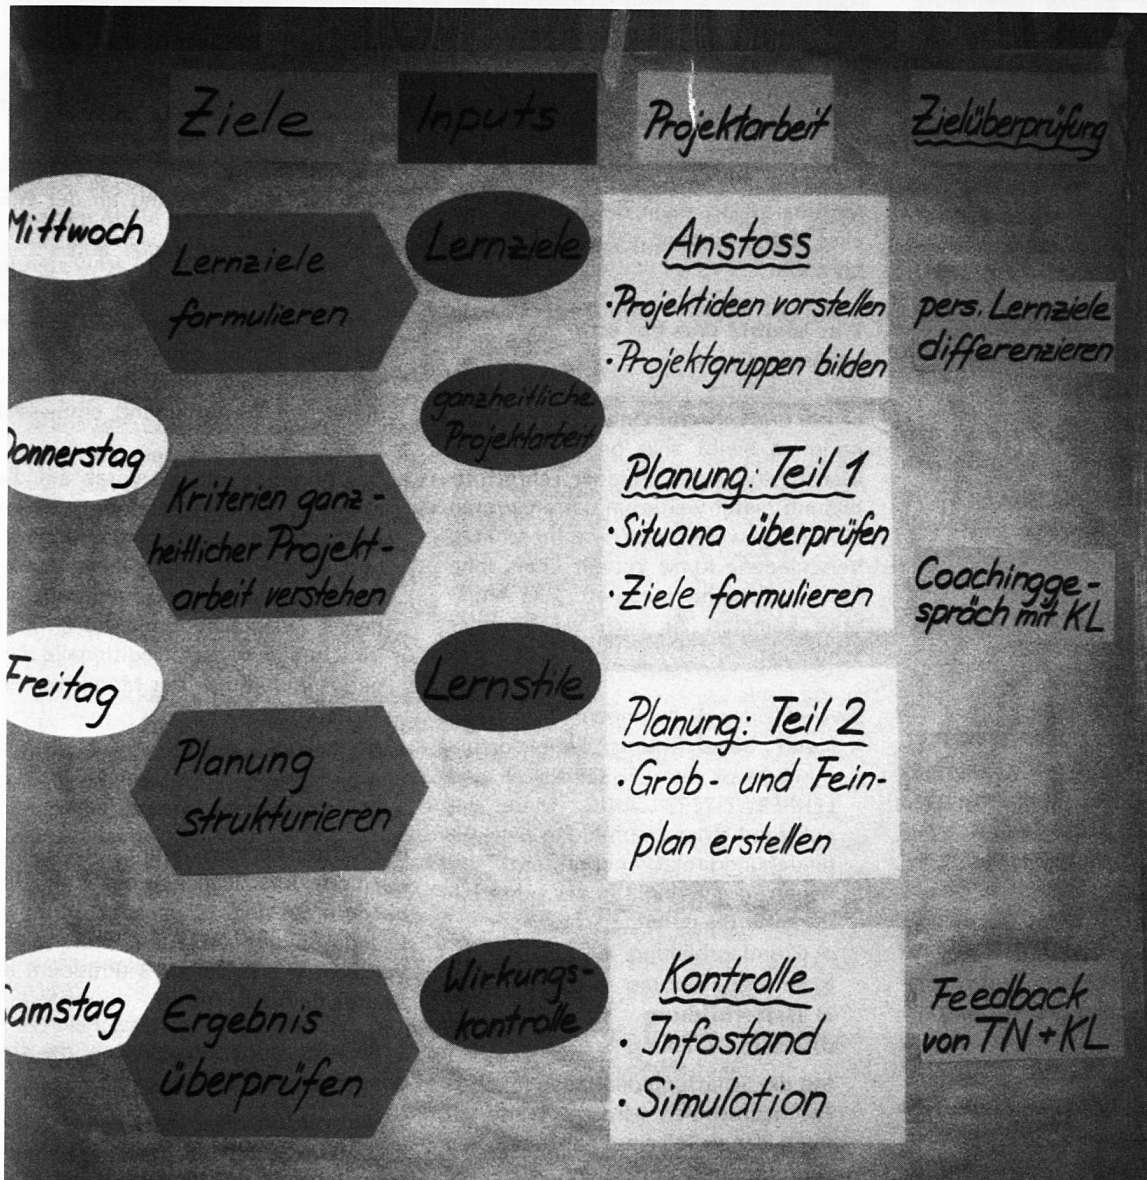 Ziele
Inputs
Projektarbeit
Zielüberprüfung
Mittwoch
Lernziele
formulieren
Lernziele
Anstoss
·Projektideen vorstellen
·Projektgruppen bilden
pers. Lernziele
differenzieren
Donnerstag
Kriterien ganz-
heitlicher Projekt-
arbeit verstehen
ganzheitliche
Projektarbeit
Planung: Teil 1
·Situana überprüfen
·Ziele formulieren
Coachingge-
spräch mit KL
Freitag
Planung
strukturieren
Lernstile
Planung: Teil 2
·Grob- und Fein-
plan erstellen
Samstag
Ergebnis
überprüfen
Wirkungs-
kontrolle
Kontrolle
· Infostand
· Simulation
Feedback
von TN + KL